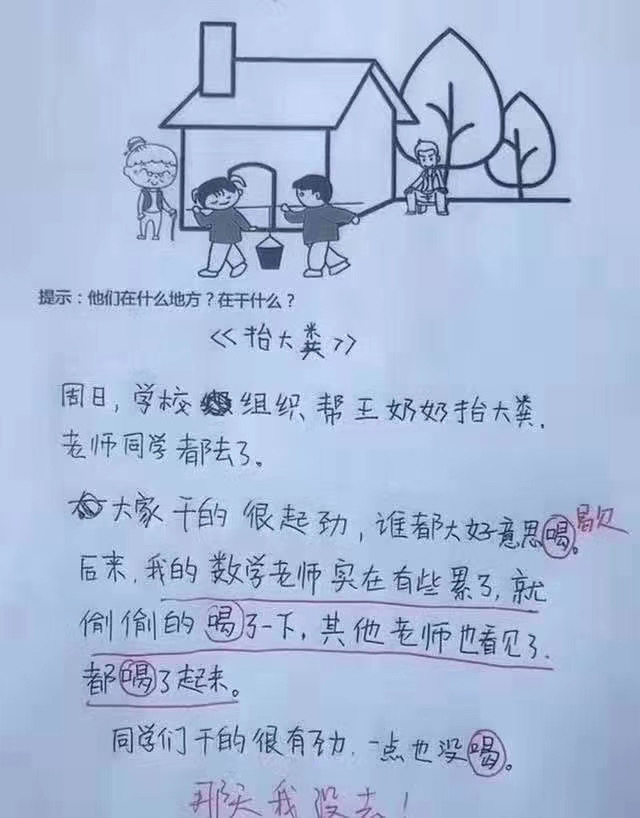 提示：他们在什么地方？在干什么？
《抬大粪》
周日，学校组织帮王奶奶抬大粪.
老师同学都去了。
大家干的很起劲，谁都大好意思喝。歇
后来，我的数学老师实在有些累了，就
偷偷的喝了一下，其他老师也看见了.
都喝了起来。
同学们干的很有劲.一点也没喝。
那天我没去！